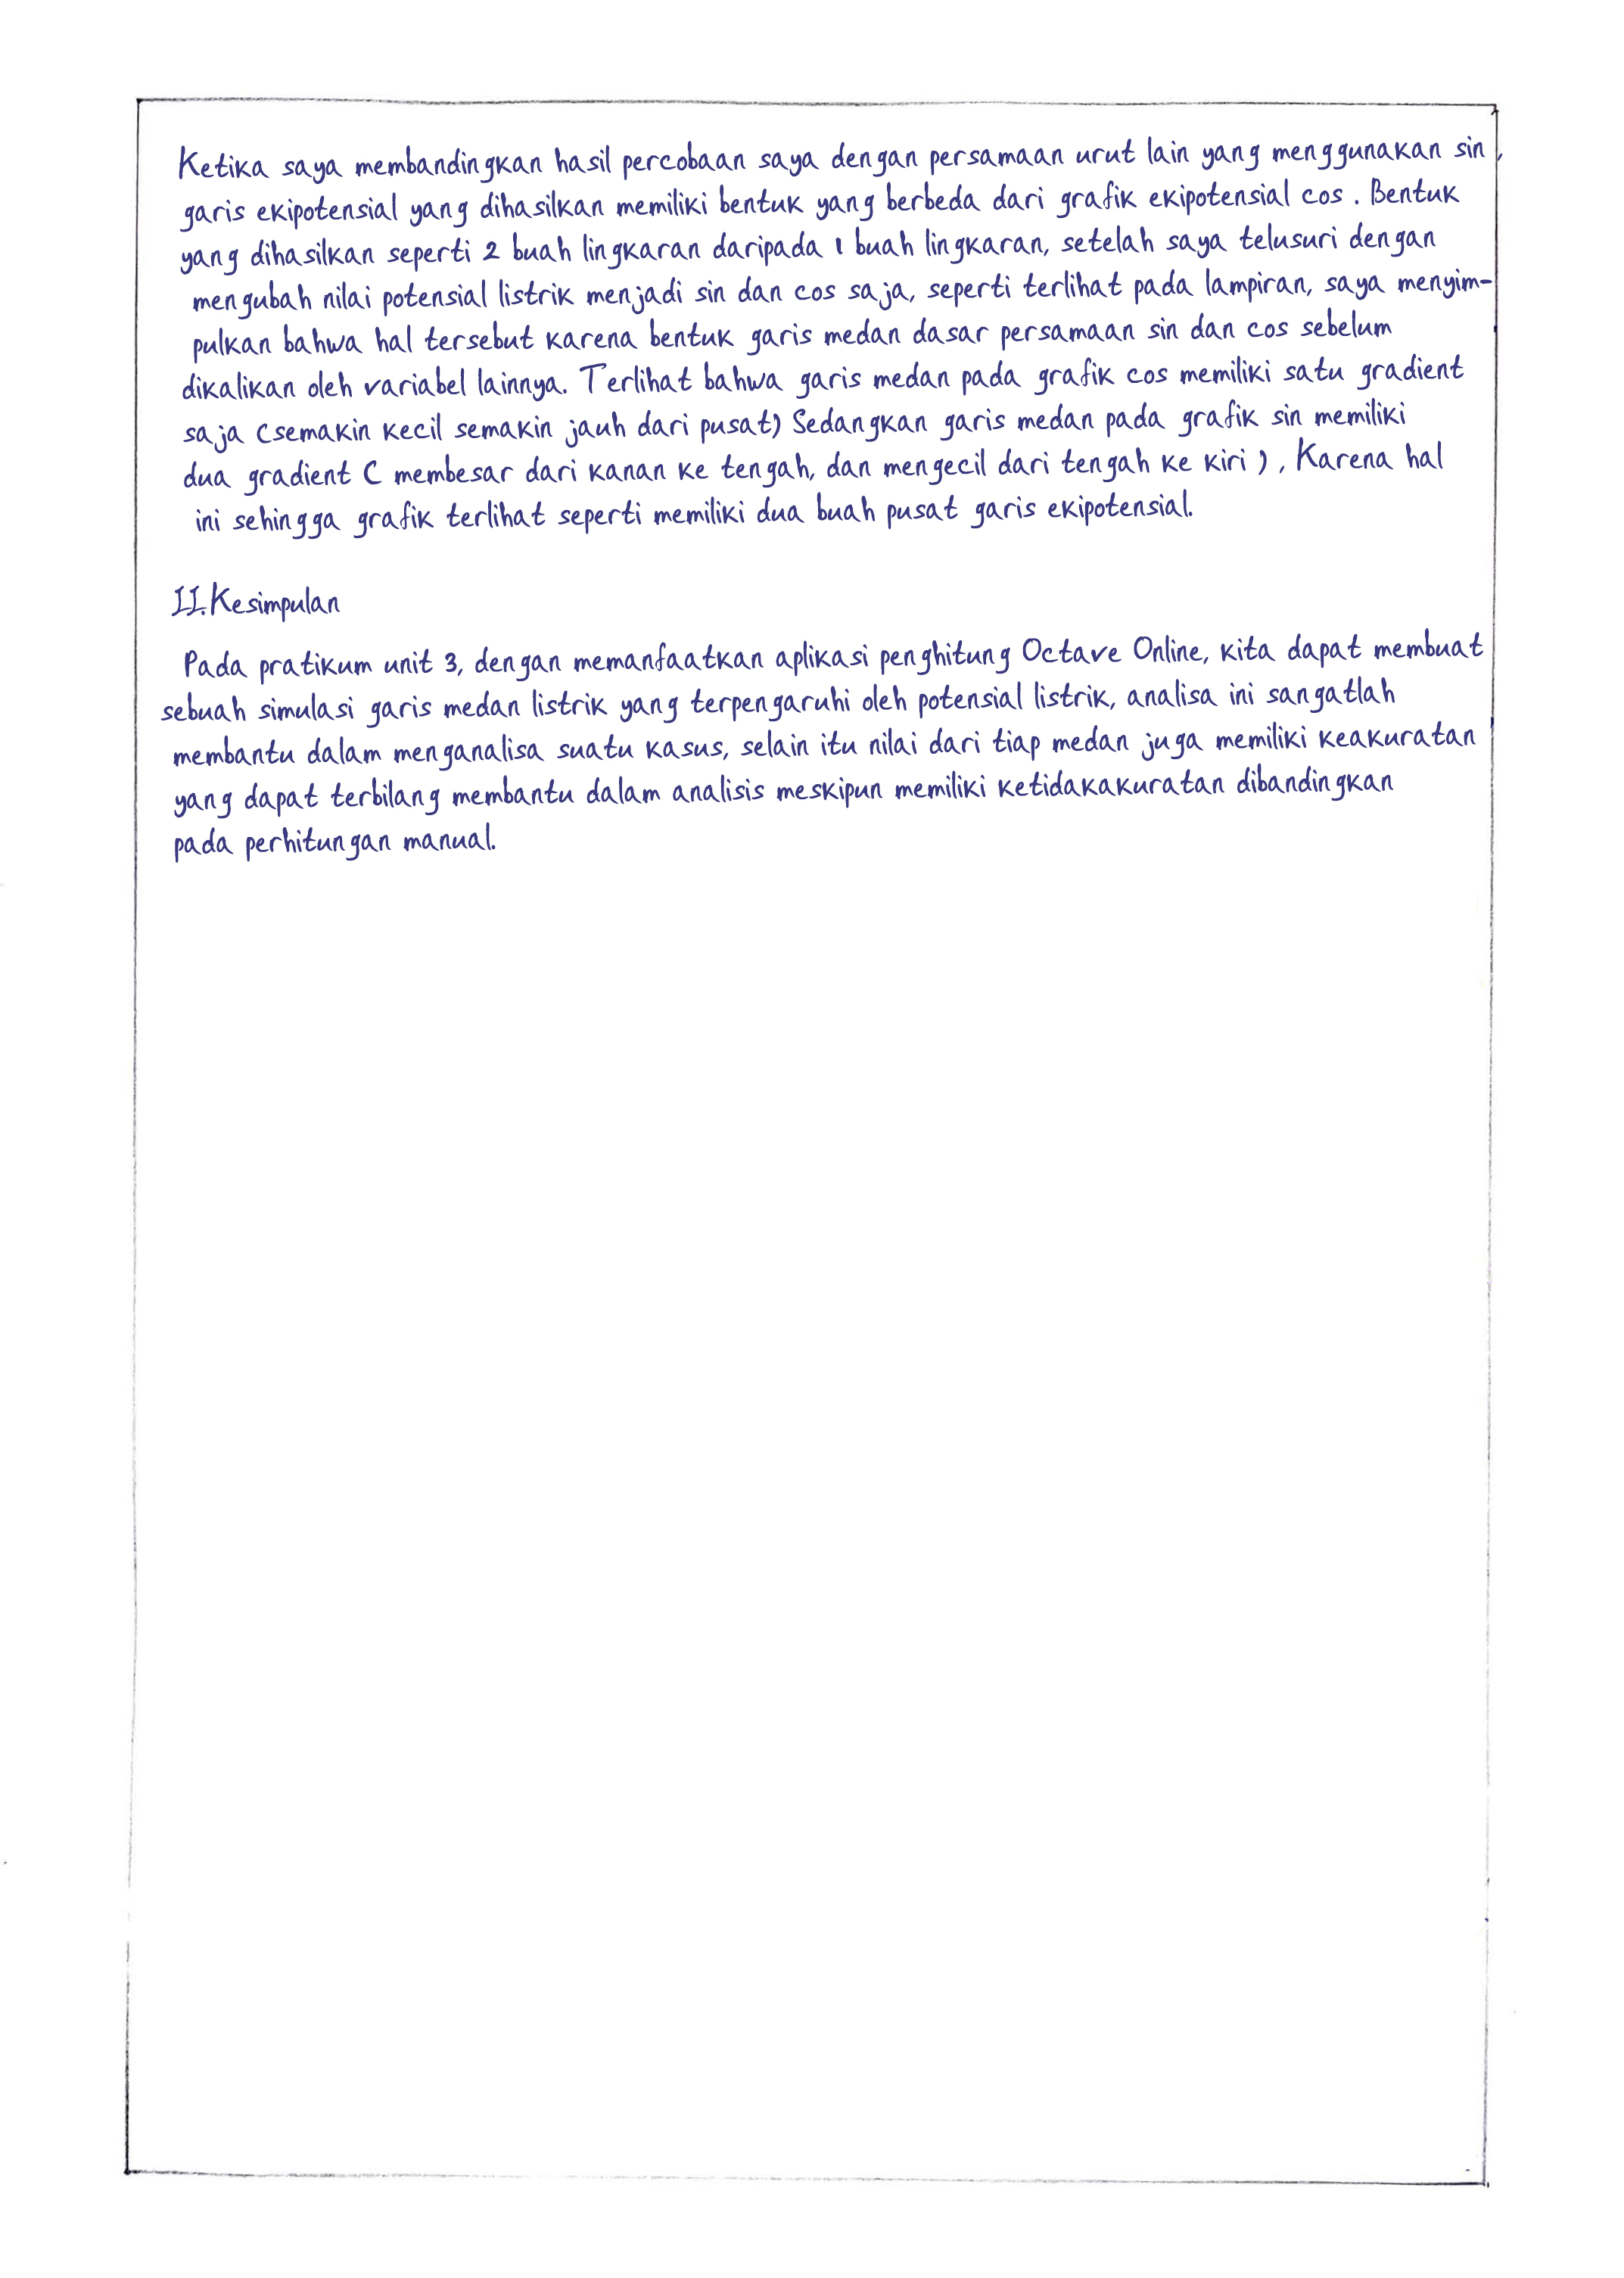 Ketika saya membandingkan hasil percobaan saya dengan persamaan urut lain yang menggunakan sin,
garis ekipotensial yang dihasilkan memiliki bentuk yang berbeda dari grafik ekipotensial cos. Bentuk
yang dihasilkan seperti 2 buah lingkaran daripada 1 buah lingkaran, setelah saya telusuri dengan
mengubah nilai potensial listrik menjadi sin dan cos saja, seperti terlihat pada lampiran, saya menyim-
pulkan bahwa hal tersebut karena bentuk garis medan dasar persamaan sin dan cos sebelum
dikalikan oleh variabel lainnya. Terlihat bahwa garis medan pada grafik cos memiliki satu gradient
saja (semakin kecil semakin jauh dari pusat) Sedangkan garis medan pada grafik sin memiliki
dua gradient ( membesar dari kanan ke tengah, dan mengecil dari tengah ke kiri ), Karena hal
ini sehingga grafik terlihat seperti memiliki dua buah pusat garis ekipotensial.
II. Kesimpulan
Pada pratikum unit 3, dengan memanfaatkan aplikasi penghitung Octave Online, kita dapat membuat
sebuah simulasi garis medan listrik yang terpengaruhi oleh potensial listrik, analisa ini sangatlah
membantu dalam menganalisa suatu kasus, selain itu nilai dari tiap medan juga memiliki keakuratan
yang dapat terbilang membantu dalam analisis meskipun memiliki ketidakakuratan dibandingkan
pada perhitungan manual.